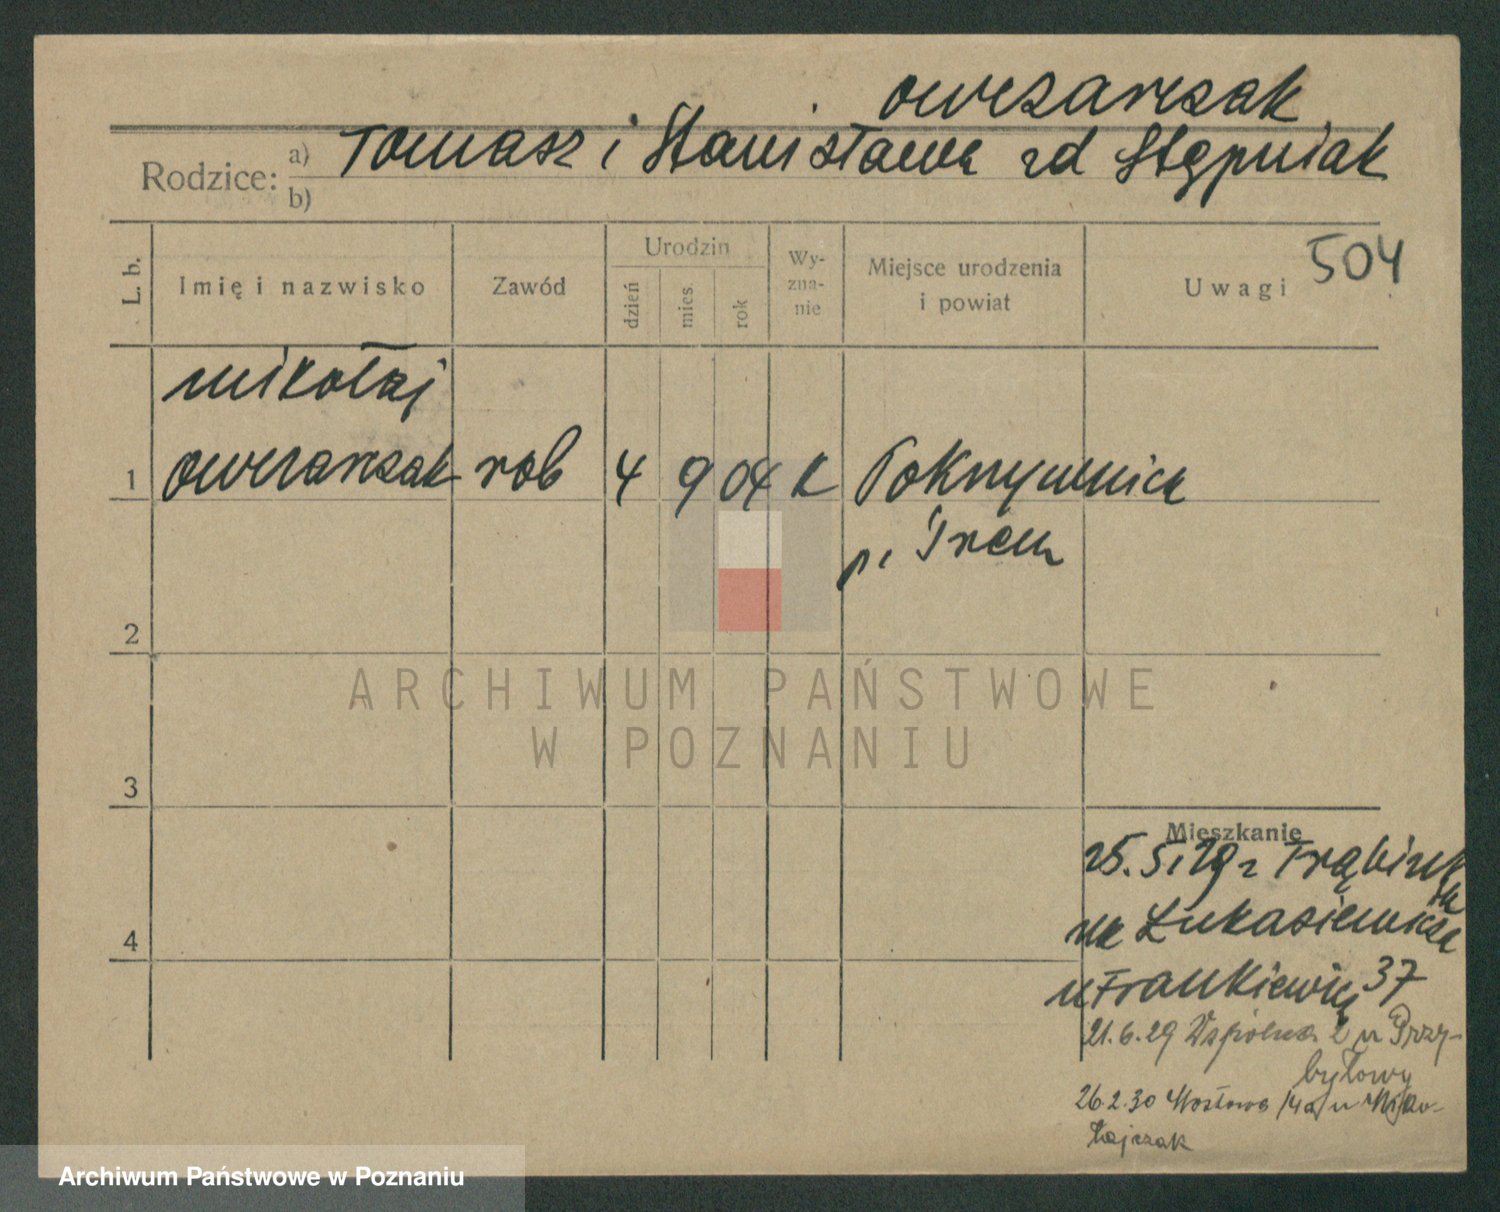 Owczarczak
Rodzice: a) Tomasz i Stanisława zd Stępniak
b)
L. b. Imię i nazwisko Zawód Urodzin dzień mies. rok Wy-zna-nie Miejsce urodzenia i powiat Uwagi 504
Mikołaj
1 Owczarczak rob 4 9 04 k Pokrzywnica
p. Śrem
2
ARCHIWUM PAŃSTWOWE
W POZNANIU
3
Mieszkanie
25.5.29 z
4
na Łukasiewicza
u Frankiewicz 37
21.6.29 Wspólna 2 u Przy-
byłowy
26.2.30 Mostowa 14a u
Archiwum Państwowe w Poznaniu